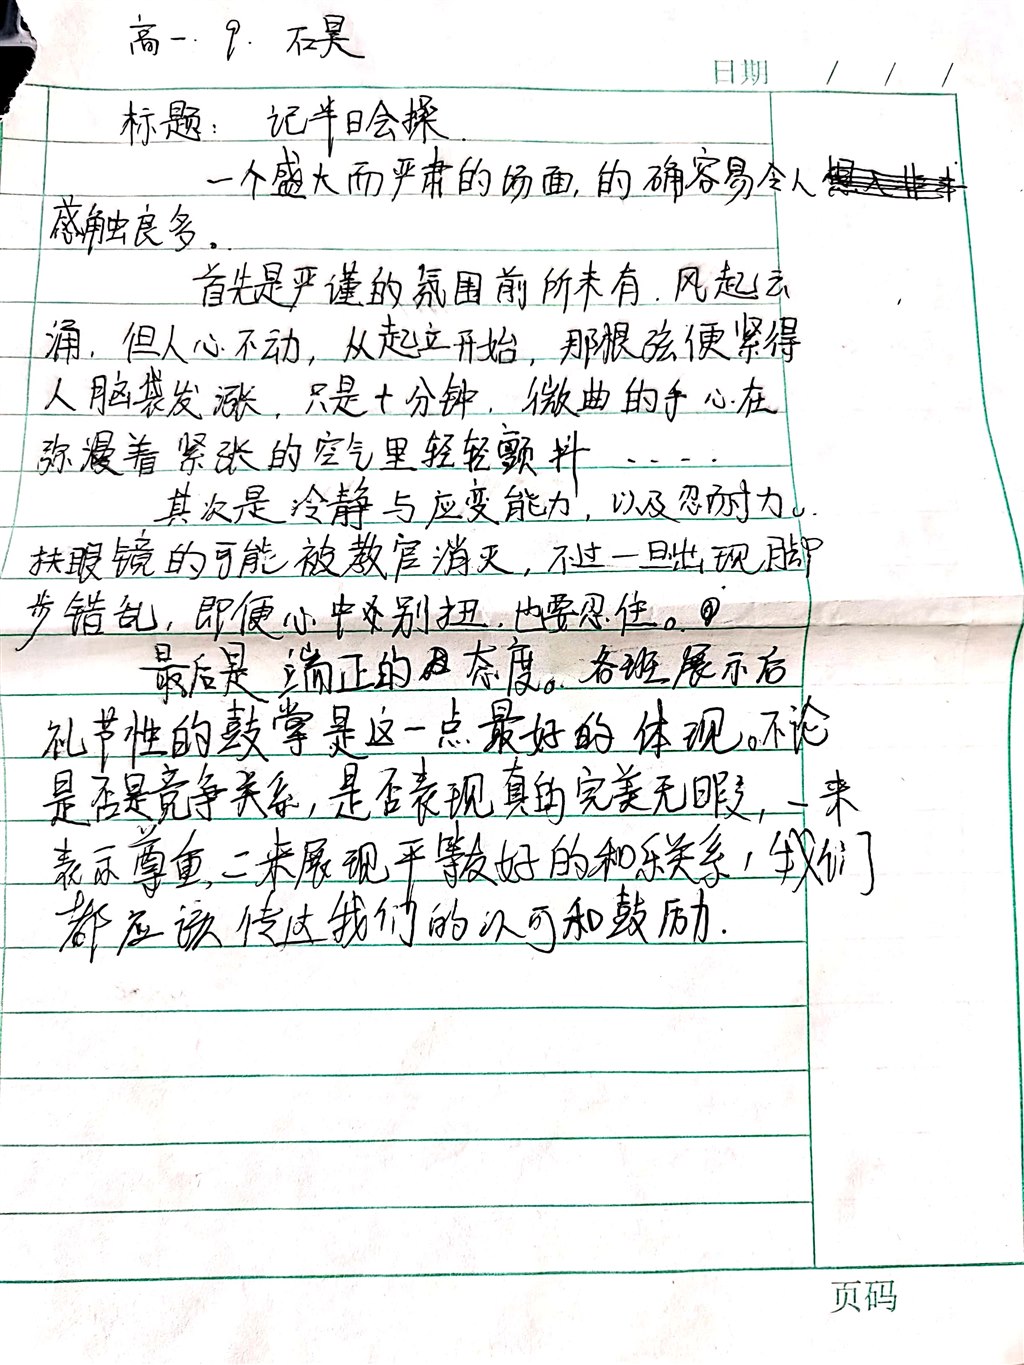 高一.9. 石昊
日期 / / /
标题: 记半日会操.
一个盛大而严肃的场面,的确容易令人
感触良多。
首先是严谨的氛围前所未有.风起云
涌,但人心不动,从起立开始,那根弦便紧得
人脑袋发涨,只是十分钟,微曲的手心在
弥漫着紧张的空气里轻轻颤抖 ....
其次是冷静与应变能力,以及忍耐力。
扶眼镜的可能被教官消灭,不过一旦出现脚
步错乱,即便心中别扭,也要忍住。
最后是端正的态度。各班展示后
礼节性的鼓掌是这一点最好的体现。不论
是否是竞争关系,是否表现真的完美无暇,一来
表示尊重,二来展现平等友好的和乐关系,我们
都应该传达我们的认可和鼓励.
页码